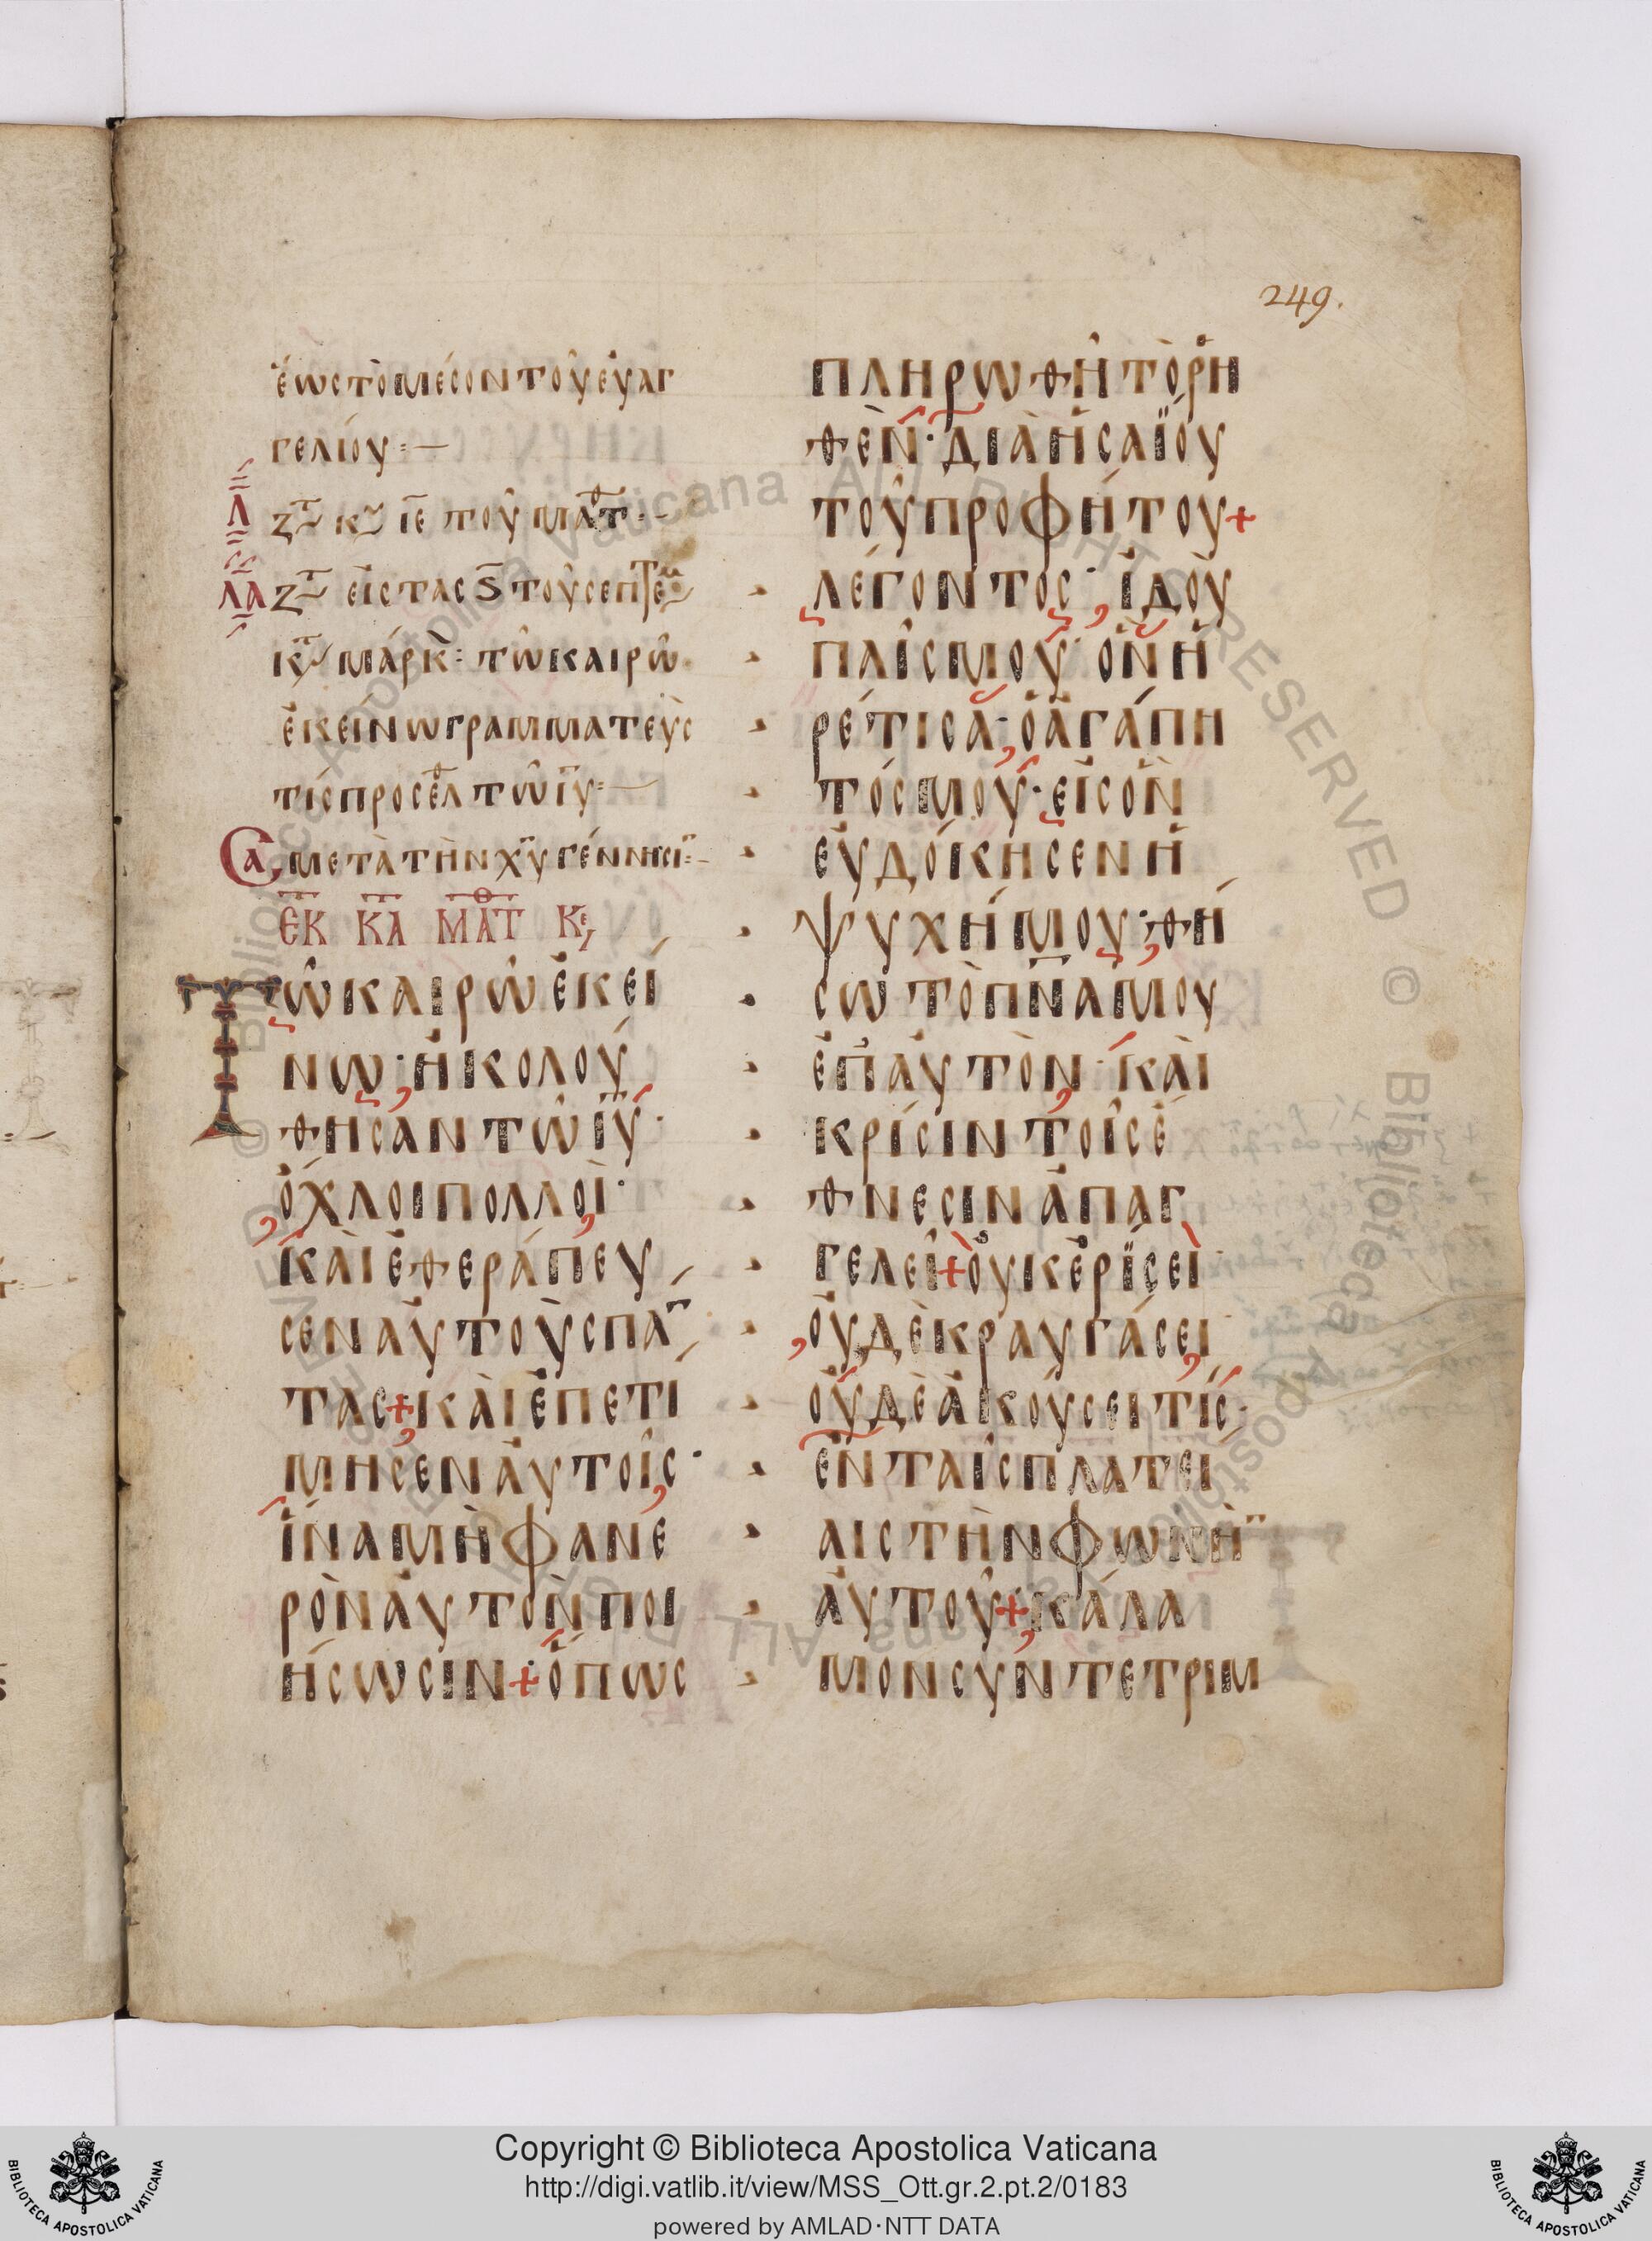 249.
ἕωςτομέσοντοῦεὐαγ
γελίου:—
Λ ΖΤ κυ ιε τοῦ Ματθ
ΛΑ ΖΤ εἰςτας ς τοῦσεπτε
κτ μάρκ: τῶκαιρῶ
ἐκεινωγραμματεὺς
τίςπροσελθ τῶ ιυ:—
Σα μετὰτὴνχυγέννησι:—
ΕΚ ΚΑ ΜΑΤΘ Κε
Τῶκαιρῶἐκεί
νω· ἠκολού
θησαντῶιυ·
ὄχλοιπολλοὶ·
καὶἐθεράπευ
σεναὐτοὺςπαν
τας+καὶἐπετί
μησεναὐτοῖς·
ἵναμὴφανε
ρὸναὐτὸνποι
ήσωσιν+ὅπως
πληρωθῆτὸρη
θὲν·διὰἡσαΐου
τοῦπροφήτου+
λέγοντος· ἰδοὺ
παῖςμου· ὃνἡ
ρέτισα· ὁἀγάπη
τόςμου· εἰςὃν
εὐδόκησενἡ
ψυχήμου· θή
σωτὸπναμου
ἐπαὐτὸν· καὶ
κρίσιντοῖςἔ
θνεσινἀπαγ
γελεῖ+οὐκἐρίσει·
οὐδὲκραυγάσει·
οὐδὲἀκούσειτίς·
ἐνταῖςπλατεί
αιςτὴνφωνὴν
αὐτοῦ+κάλα
μονσυντετριμ
Copyright © Biblioteca Apostolica Vaticana
http://digi.vatlib.it/view/MSS_Ott.gr.2.pt.2/0183
powered by AMLAD·NTT DATA
BIBLIOTECA APOSTOLICA VATICANA
BIBLIOTECA APOSTOLICA VATICANA